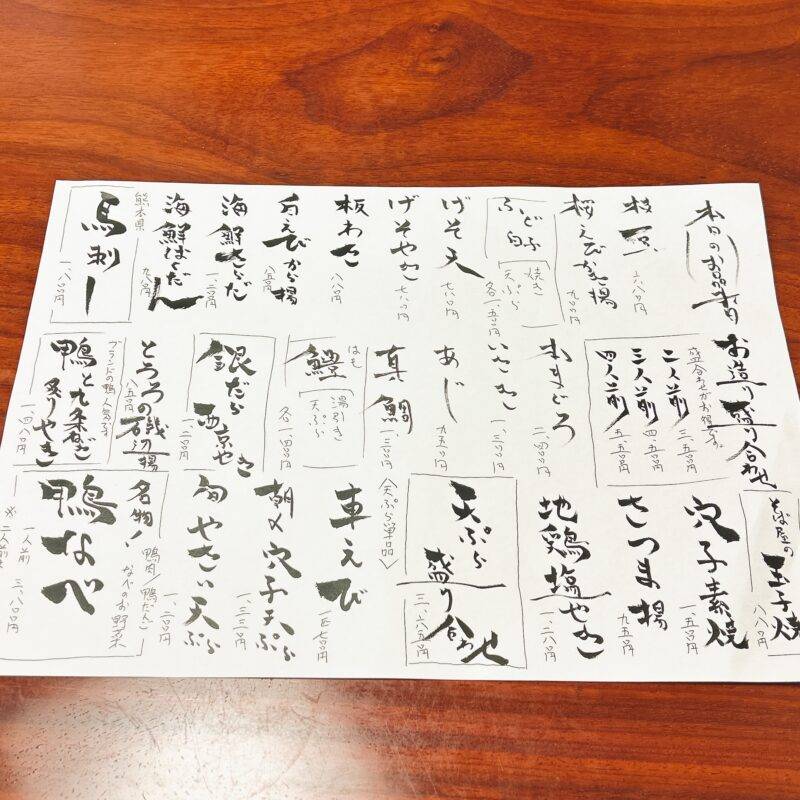 本日のお品書き
枝豆
六八〇円
桜えびかき揚
九〇〇円
ふぐ
白子
焼き
天ぷら
各一、五〇〇円
げそ天
七八〇円
げそやき
七八〇円
板わさ
八八〇円
白えびから揚
八五〇円
海鮮さらだ
一、二〇〇円
海鮮ばくだん
九八〇円
熊本県
馬刺し
一、八〇〇円
お造り盛り合わせ
盛合わせがお得です。
二人前
三、五〇〇円
三人前
四、五〇〇円
四人前
五、五〇〇円
本まぐろ
二、四〇〇円
いさき
一、三〇〇円
あじ
九五〇円
真鯛
一、三〇〇円
はも
鱧
湯引き
天ぷら
各一、四〇〇円
銀だら
西京やき
一、二〇〇円
とろろの磯辺揚
八五〇円
ブランドの鴨 人気です
鴨と九条ねぎ
炙りやき
一、四八〇円
そば屋の
玉子焼
八八〇円
穴子素焼
一、五〇〇円
さつま揚
九五〇円
地鶏塩やき
一、二八〇円
天ぷら
盛り合わせ
三、六八五円
〈天ぷら単品〉
車えび
一匹七〇〇円
朝〆穴子天ぷら
一、三二〇円
旬やさい天ぷら
一、二〇〇円
名物!
鴨肉/鴨だんご
なべのお野菜
鴨なべ
一人前 三、八〇〇円
※二人前